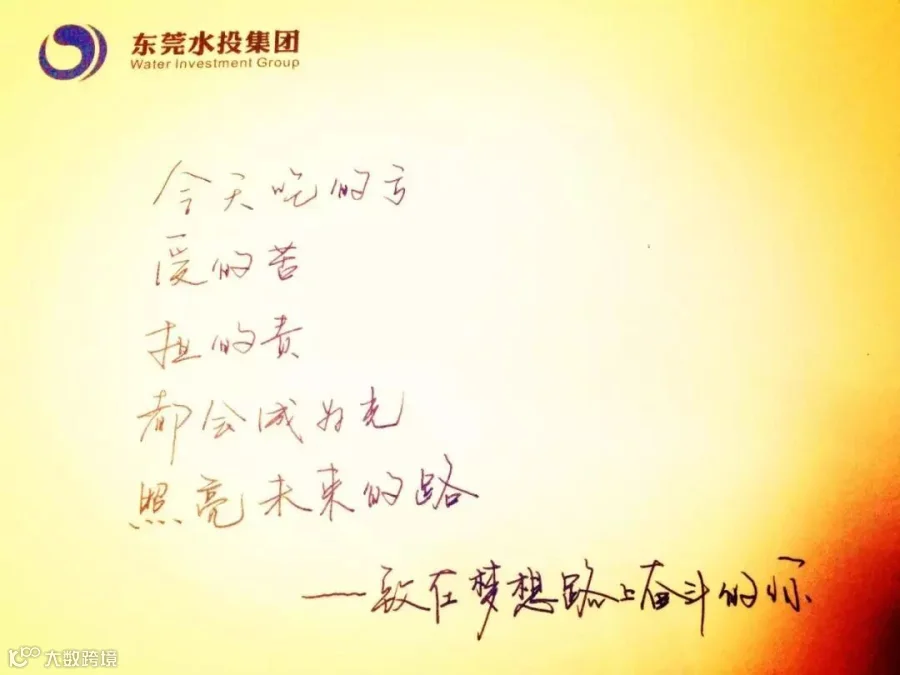 东莞水投集团
Water Investment Group
今天吃的亏
受的苦
担的责
都会成为光
照亮未来的路
——致在梦想路上奋斗的你
大数跨境